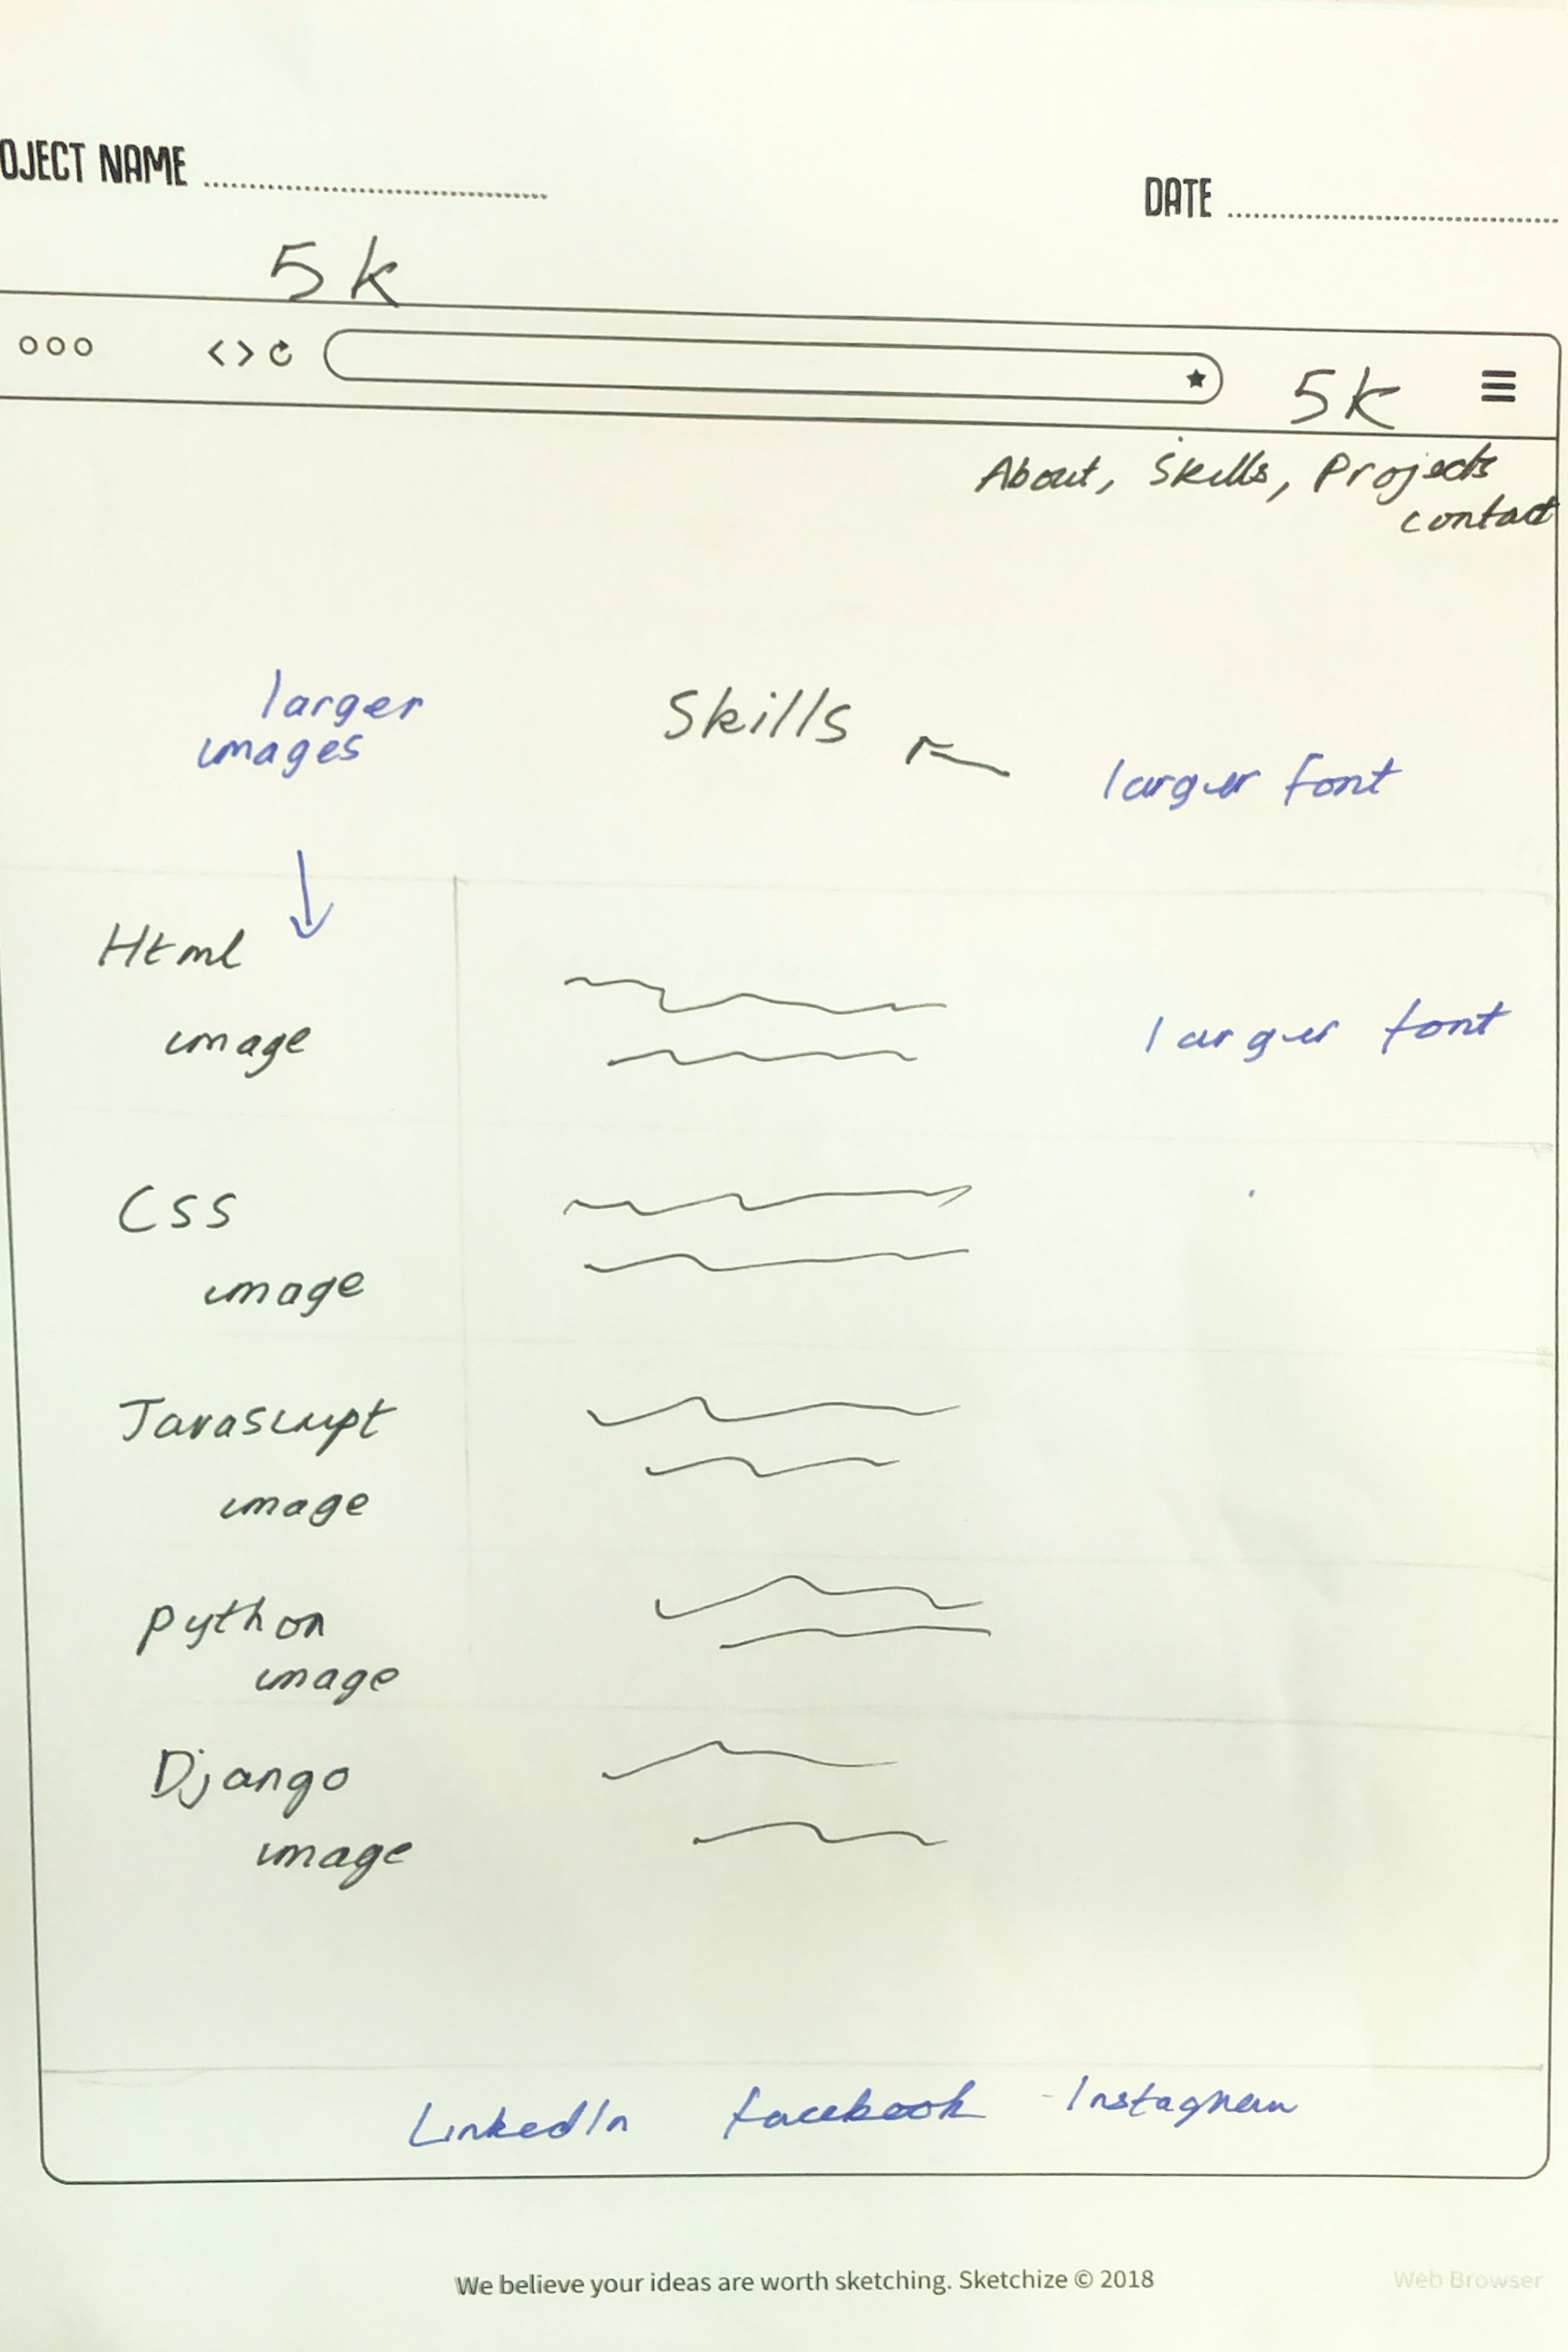 OJECT NAME
DATE
5k
5k
About, Skills, Projects
contact
larger
images
Skills
larger font
Html
image
larger font
CSS
image
Javascript
image
python
image
Django
image
LinkedIn facebook Instagram
We believe your ideas are worth sketching. Sketchize © 2018
Web Browser